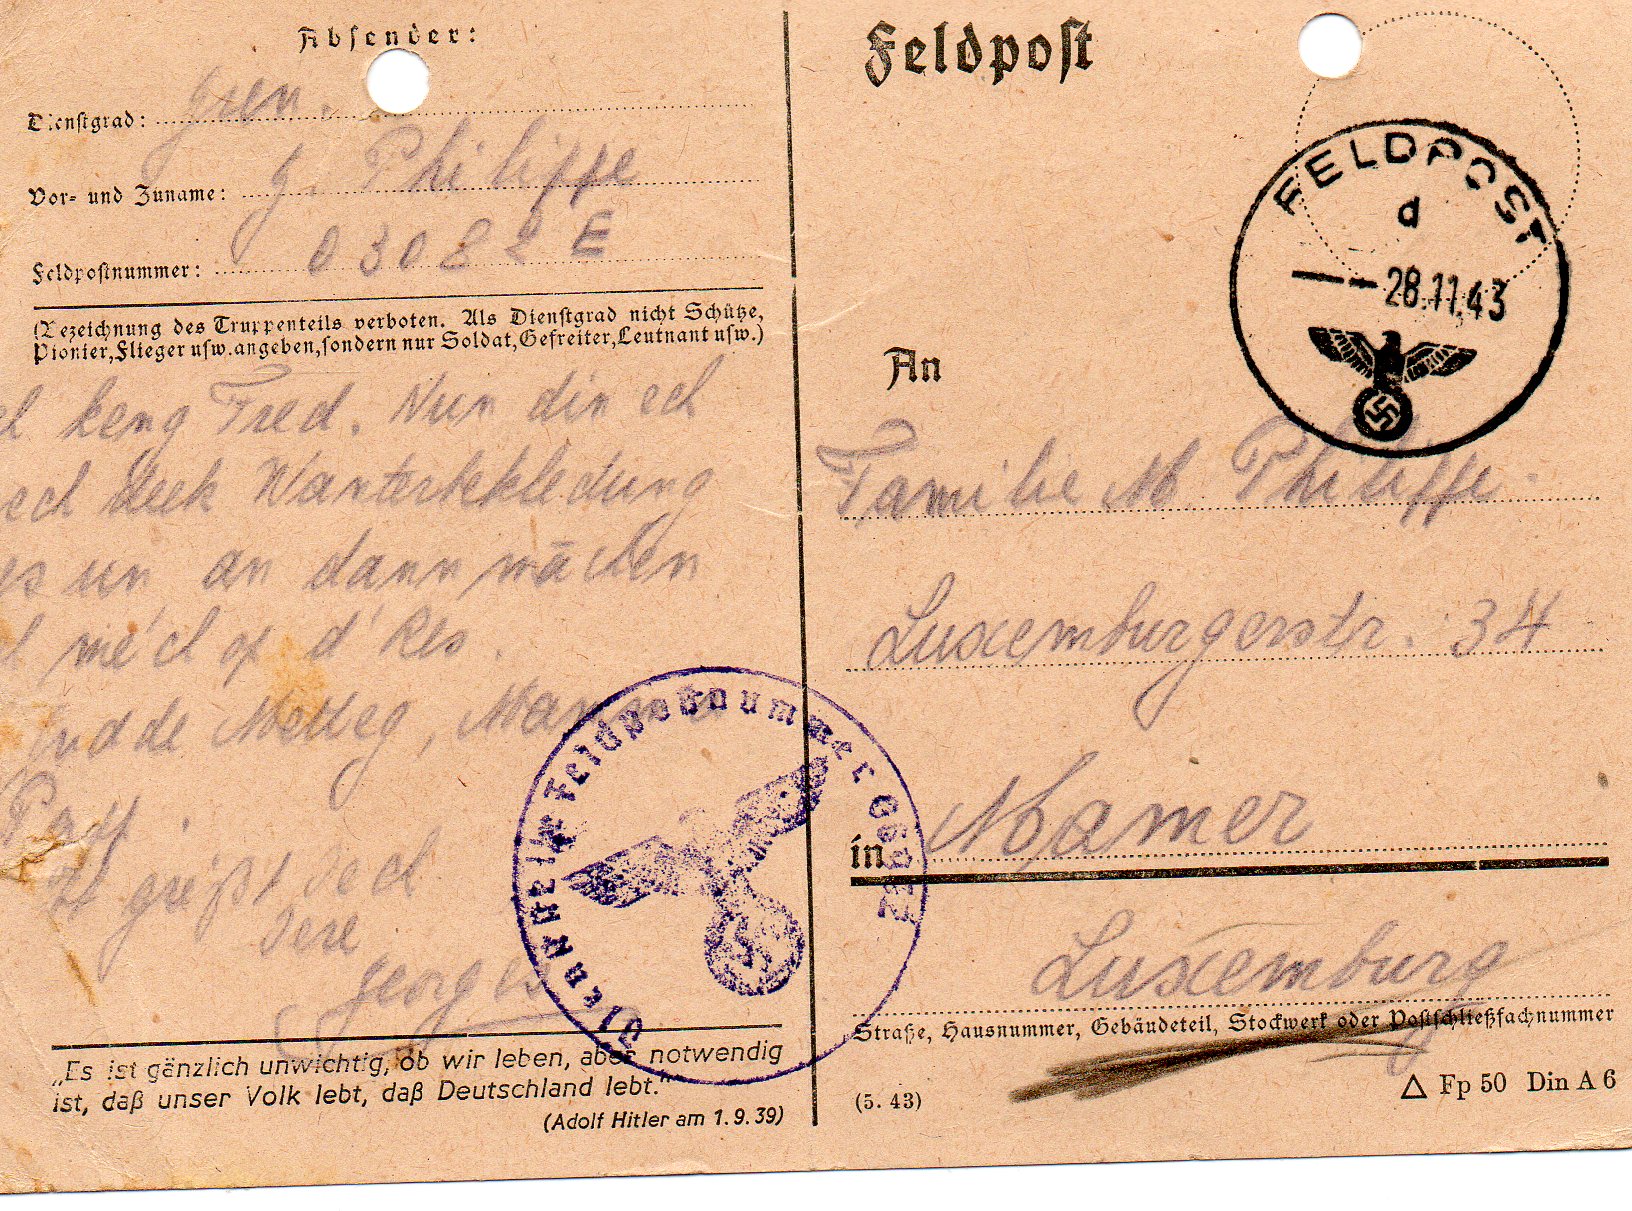 Absender:
Dienstgrad: Gren.
Vor- und Zuname: G. Philippe
Feldpostnummer: 03082 E
(Bezeichnung des Truppenteils verboten. Als Dienstgrad nicht Schütze,
Pionier, Flieger usw. angeben, sondern nur Soldat, Gefreiter, Leutnant usw.)
keng Fred. Nun din ech
Wanterbekledung
un an dann mächen
méch op d'Res.
Mamm
Papp.
Et gréißt Iech
Iere
Georges
„Es ist gänzlich unwichtig, ob wir leben, aber notwendig
ist, daß unser Volk lebt, daß Deutschland lebt.“
(Adolf Hitler am 1.9.39)
Dienststelle Feldpostnummer
Feldpost
FELDPOST
d
28.11.43
An
Familie M. Philippe.
Luxemburgerstr. 34
in Mamer
Luxemburg
Straße, Hausnummer, Gebäudeteil, Stockwerk oder Postschließfachnummer
(5. 43)
△ Fp 50 Din A 6